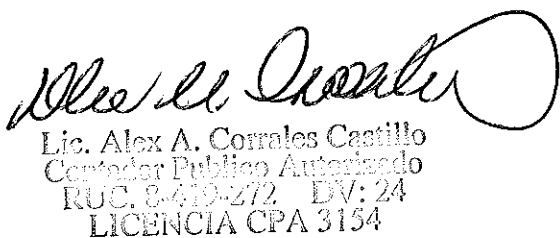 Lic. Alex A. Corrales Castillo
Contador Publico Autorizado
RUC. 8-419-272 DV: 24
LICENCIA CPA 3154